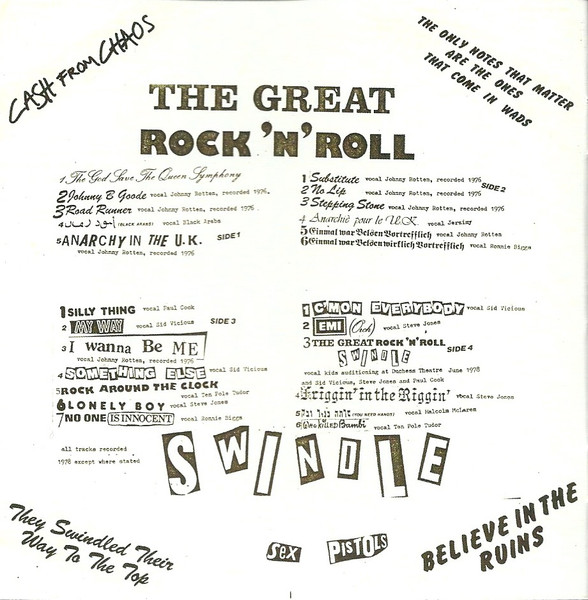 CASH FROM CHAOS
THE ONLY NOTES THAT MATTER
ARE THE ONES
THAT COME IN WADS
THE GREAT
ROCK 'N' ROLL
1 The God Save The Queen Symphony
2 Johnny B Goode vocal Johnny Rotten, recorded 1976.
3 Road Runner vocal Johnny Rotten, recorded 1976.
4 (BLACK ARABS) vocal Black Arabs
5 ANARCHY IN THE U.K. SIDE 1
vocal Johnny Rotten, recorded 1976
1 Substitute vocal Johnny Rotten, recorded 1976
SIDE 2
2 No Lip vocal Johnny Rotten, recorded 1976
3 Stepping Stone vocal Johnny Rotten, recorded 1976
4 Anarchie pour le U.K vocal Jerzimy
5 Einmal war Belsen Vortrefflich vocal Johnny Rotten
6 Einmal war Belsen wirklich Vortrefflich vocal Ronnie Biggs
1 SILLY THING vocal Paul Cook
2 MY WAY vocal Sid Vicious SIDE 3
3 I wanna Be ME
vocal Johnny Rotten, recorded 1976
4 SOMETHING ELSE vocal Sid Vicious
5 ROCK AROUND THE CLOCK
vocal Ten Pole Tudor
6 LONELY BOY vocal Steve Jones
7 NO ONE IS INNOCENT vocal Ronnie Biggs
1 C'MON EVERYBODY vocal Sid Vicious
2 EMI (Orch) vocal Steve Jones
3 THE GREAT ROCK 'N' ROLL
SWINDLE SIDE 4
vocal kids auditioning at Duchess Theatre June 1978
and Sid Vicious, Steve Jones and Paul Cook
4 Friggin' in the Riggin' vocal Steve Jones
5 (YOU NEED HANDS) vocal Malcolm McLaren
6 Who Killed Bambi vocal Ten Pole Tudor
all tracks recorded
1978 except where stated
SWINDLE
They Swindled Their
Way To The Top
SEX PISTOLS
BELIEVE IN THE
RUINS